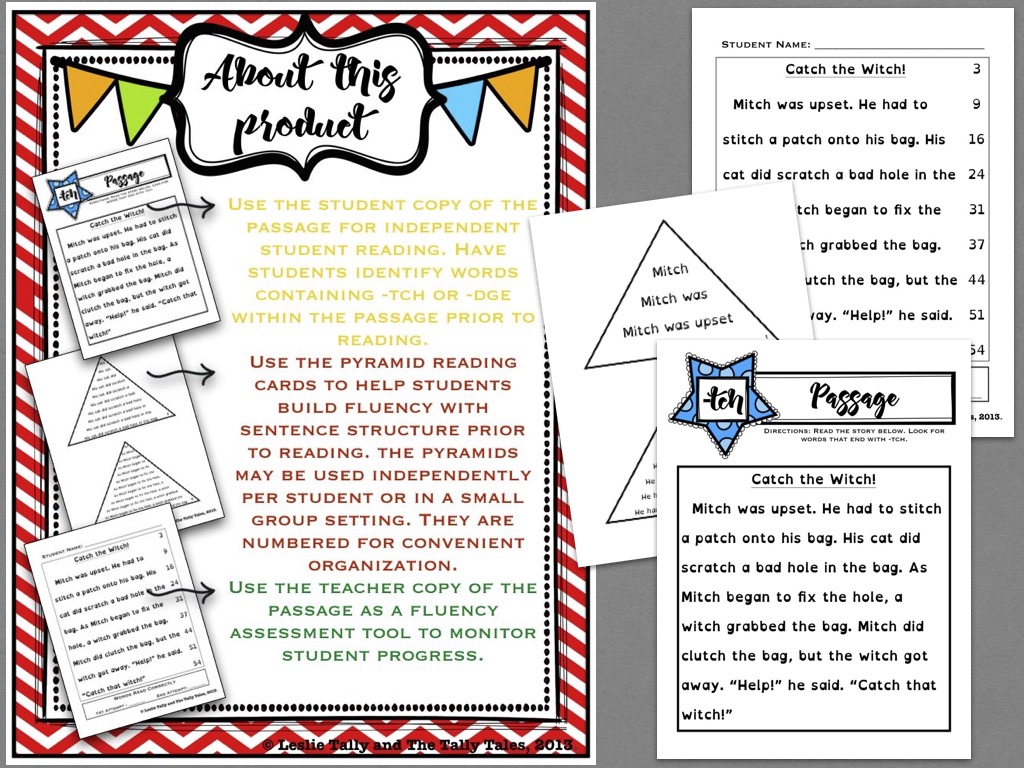 About this
product
Use the student copy of the
passage for independent
student reading. Have
students identify words
containing -tch or -dge
within the passage prior to
reading.
Use the pyramid reading
cards to help students
build fluency with
sentence structure prior
to reading. the pyramids
may be used independently
per student or in a small
group setting. They are
numbered for convenient
organization.
Use the teacher copy of the
passage as a fluency
assessment tool to monitor
student progress.
© Leslie Tally and The Tally Tales, 2013
-tch
Passage
Catch the Witch!
Mitch was upset. He had to stitch
a patch onto his bag. His cat did
scratch a bad hole in the bag. As
Mitch began to fix the hole, a
witch grabbed the bag. Mitch did
clutch the bag, but the witch got
away. "Help!" he said. "Catch that
witch!"
Student Name:
Catch the Witch! 3
Mitch was upset. He had to 9
stitch a patch onto his bag. His 16
cat did scratch a bad hole in the 24
bag. As Mitch began to fix the 31
hole, a witch grabbed the bag. 37
Mitch did clutch the bag, but the 44
witch got away. "Help!" he said. 51
"Catch that witch!" 54
Words Read Correctly
1st Attempt: 2nd Attempt:
© Leslie Tally and The Tally Tales, 2013.
Student Name:
Catch the Witch! 3
Mitch was upset. He had to 9
stitch a patch onto his bag. His 16
cat did scratch a bad hole in the 24
tch began to fix the 31
h grabbed the bag. 37
utch the bag, but the 44
way. "Help!" he said. 51
54
s, 2013.
Mitch
Mitch was
Mitch was upset
H
He h
He ha
-tch
Passage
Directions: Read the story below. Look for
words that end with -tch.
Catch the Witch!
Mitch was upset. He had to stitch
a patch onto his bag. His cat did
scratch a bad hole in the bag. As
Mitch began to fix the hole, a
witch grabbed the bag. Mitch did
clutch the bag, but the witch got
away. "Help!" he said. "Catch that
witch!"